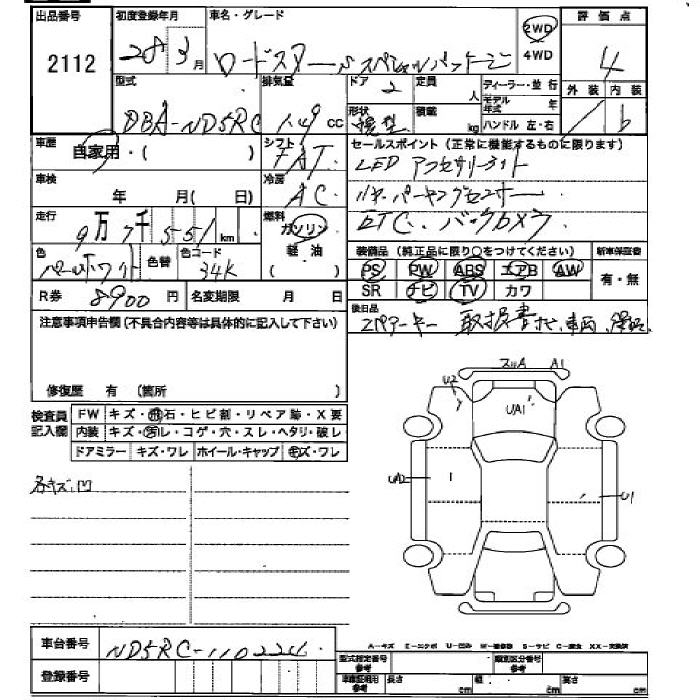 出品番号 初度登録年月 車名・グレード 2WD 評価点
2112 28年3月 ロードスター Sスペシャルパッケージ 4WD 4
型式 排気量 ドア 2 定員 人 ディーラー・並行 外装 内装
DBA-ND5RC 1.49 cc 形状 積載 kg モデル年式 年 b
ハンドル 左・右
車歴 自家用・( ) シフト FAT セールスポイント(正常に機能するものに限ります)
LED アクセサリーライト
車検 年 月( 日) 冷房 AC リヤパーキングセンサー
走行 9万7千551km 燃料 ガソリン・軽油 ETC. バックカメラ
色 パールホワイト 色替 色コード 34K ( )
装備品(純正品に限り○をつけてください) 新車保証書
PS PW ABS エアB AW 有・無
R券 8900円 名変期限 月 日 SR ナビ TV カワ
注意事項申告欄(不具合内容等は具体的に記入して下さい) 後日品 スペアーキー 取扱書
修復歴 有 (箇所 )
検査員記入欄 FW キズ・飛石・ヒビ割・リペア跡・X要
内装 キズ・汚レ・コゲ・穴・スレ・ヘタリ・破レ
ドアミラー キズ・ワレ ホイール・キャップ キズ・ワレ
各キズ.凹
A1
U2
UA1
UA2
U1
車台番号 ND5RC-110224
A-キズ E-エクボ U-凹み W-補修跡 S-サビ C-腐食 XX-交換済
登録番号 型式指定番号 参考 類別区分番号 参考
車庫証明用 参考 長さ cm 幅 cm 高さ cm